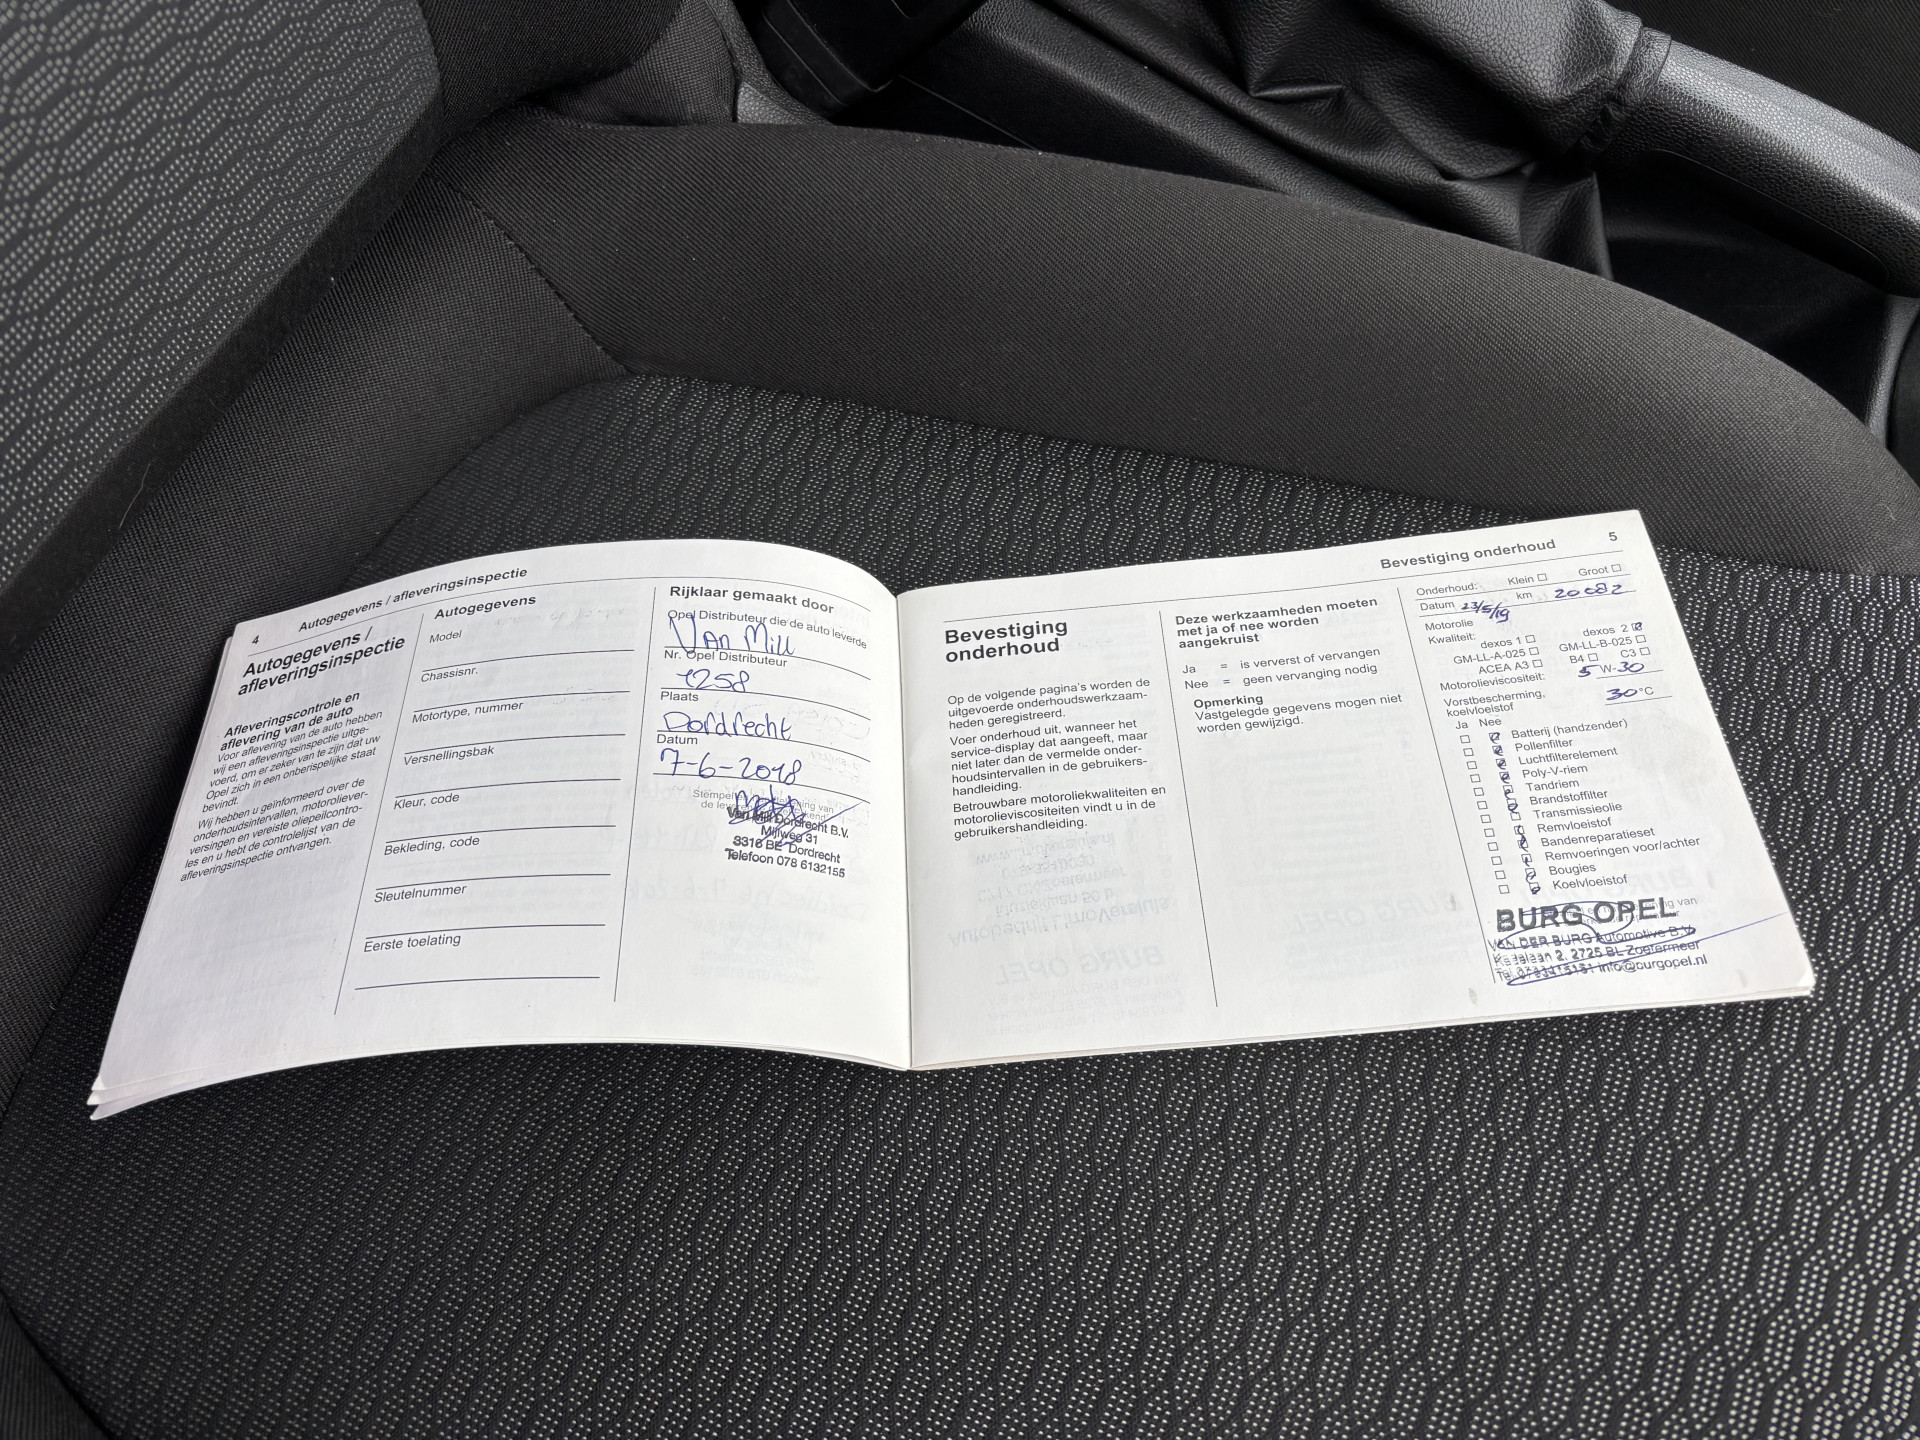 4 Autogegevens / afleveringsinspectie
Autogegevens /
afleveringsinspectie
Afleveringscontrole en
aflevering van de auto
Voor aflevering van de auto hebben
wij een afleveringsinspectie uitge-
voerd, om er zeker van te zijn dat uw
Opel zich in een onberispelijke staat
bevindt.
Wij hebben u geïnformeerd over de
onderhoudsintervallen, motoroliever-
versingen en vereiste oliepeilcontro-
les en u hebt de controlelijst van de
afleveringsinspectie ontvangen.
Autogegevens
Model
Chassisnr.
Motortype, nummer
Versnellingsbak
Kleur, code
Bekleding, code
Sleutelnummer
Eerste toelating
Rijklaar gemaakt door
Opel Distributeur die de auto leverde
Van Mill
Nr. Opel Distributeur
1258
Plaats
Dordrecht
Datum
7-6-2018
Van Mill Dordrecht B.V.
Mijlweg 31
3316 BE Dordrecht
Telefoon 078 6132155
Bevestiging onderhoud 5
Bevestiging
onderhoud
Op de volgende pagina's worden de
uitgevoerde onderhoudswerkzaam-
heden geregistreerd.
Voer onderhoud uit, wanneer het
service-display dat aangeeft, maar
niet later dan de vermelde onder-
houdsintervallen in de gebruikers-
handleiding.
Betrouwbare motoroliekwaliteiten en
motorolieviscositeiten vindt u in de
gebruikershandleiding.
Deze werkzaamheden moeten
met ja of nee worden
aangekruist
Ja = is ververst of vervangen
Nee = geen vervanging nodig
Opmerking
Vastgelegde gegevens mogen niet
worden gewijzigd.
Onderhoud: Klein Groot
Datum 23/5/19 km 20082
Motorolie
Kwaliteit:
dexos 1 dexos 2
GM-LL-A-025 GM-LL-B-025
ACEA A3 B4 C3
Motorolieviscositeit: 5 W-30
Vorstbescherming,
koelvloeistof 30 °C
Ja Nee
Batterij (handzender)
Pollenfilter
Luchtfilterelement
Poly-V-riem
Tandriem
Brandstoffilter
Transmissieolie
Remvloeistof
Bandenreparatieset
Remvoeringen voor/achter
Bougies
Koelvloeistof
BURG OPEL
VAN DER BURG Automotive B.V.
2, 2725 BL Zoetermeer
info@burgopel.nl